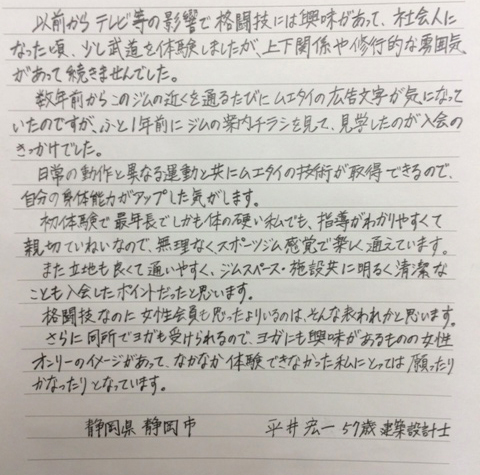 以前からテレビ等の影響で格闘技には興味があって、社会人に
なった頃、少し武道を体験しましたが、上下関係や修行的な雰囲気
があって続きませんでした。
数年前からこのジムの近くを通るたびにムエタイの広告文字が気になって
いたのですが、ふと1年前にジムの案内チラシを見て、見学したのが入会の
きっかけでした。
日常の動作と異なる運動と共にムエタイの技術が取得できるので、
自分の身体能力がアップした気がします。
初体験で最年長でしかも体の硬い私でも、指導がわかりやすくて
親切ていねいなので、無理なくスポーツジム感覚で楽しく通えています。
また立地も良くて通いやすく、ジムスペース・施設共に明るく清潔な
ことも入会したポイントだったと思います。
格闘技なのに女性会員も思ったよりいるのは、そんな表われかと思います。
さらに同所でヨガも受けられるので、ヨガにも興味があるものの女性
オンリーのイメージがあって、なかなか体験できなかった私にとっては願ったり
かなったりとなっています。
静岡県 静岡市 平井宏一 57歳 建築設計士